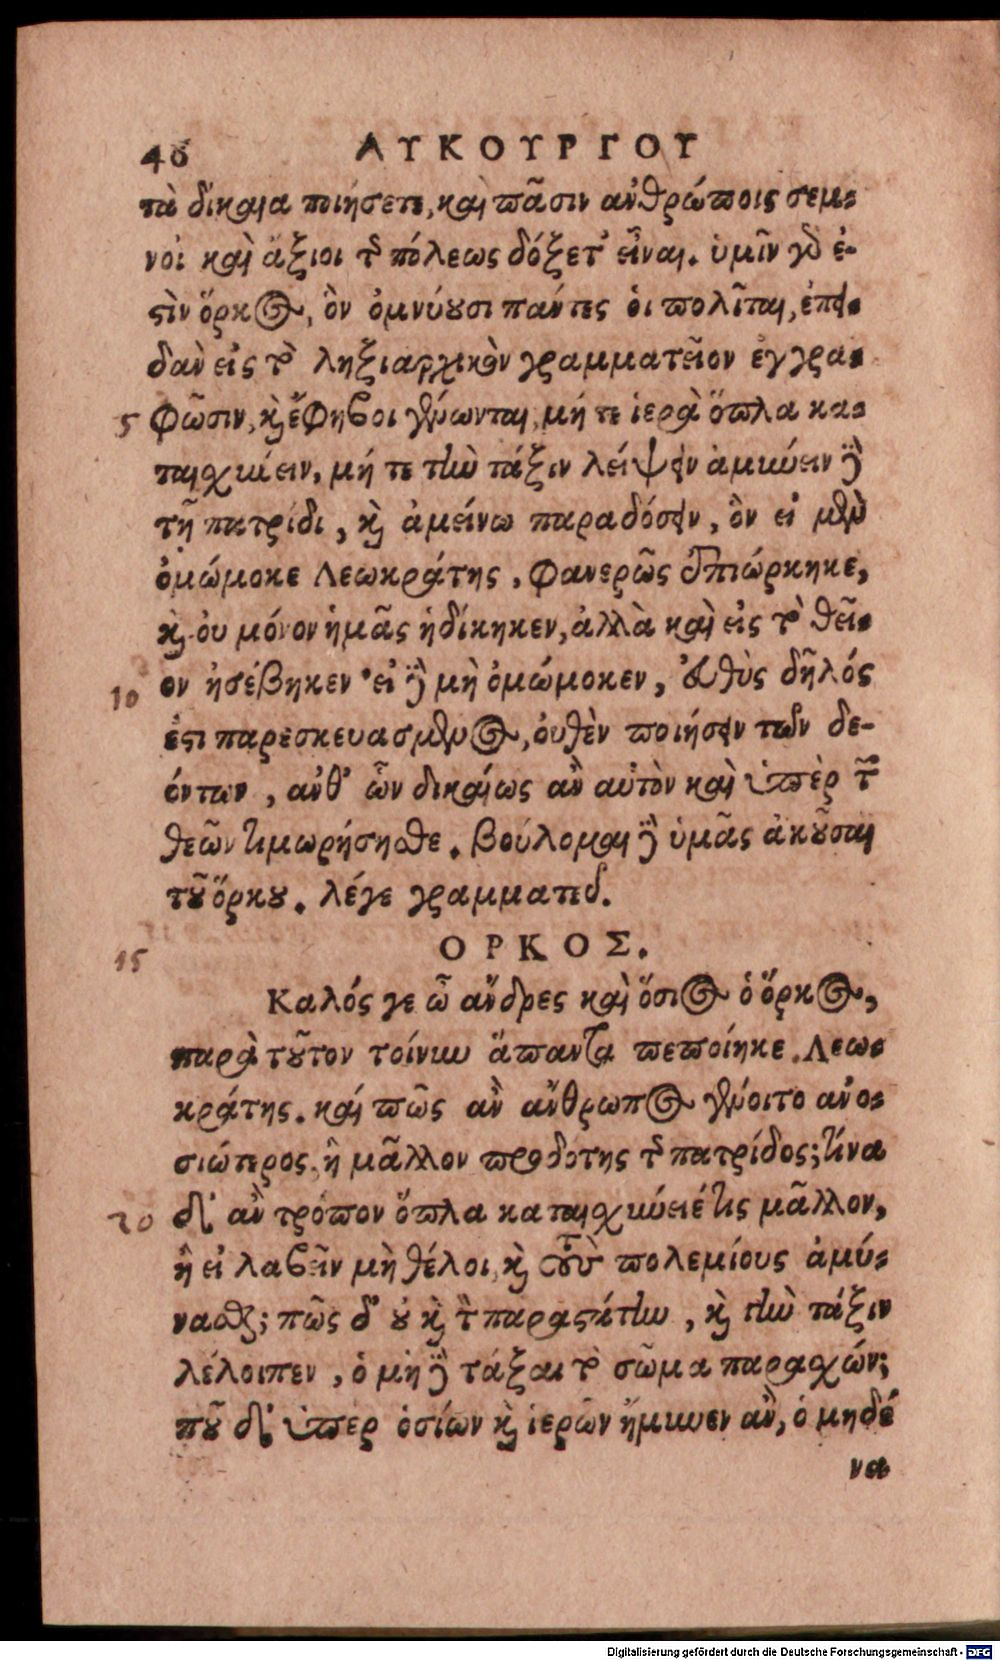 46 ΛΥΚΟΥΡΓΟΥ
τὰ δίκαια ποιήσετε, καὶ πᾶσιν ἀνθρώποις σεμ-
νοὶ καὶ ἄξιοι τῆς πόλεως δόξετ' εἶναι. ὑμῖν γὰρ ἐ-
στὶν ὅρκος, ὃν ὀμνύουσι πάντες οἱ πολῖται, ἐπει-
δὰν εἰς τὸ ληξιαρχικὸν γραμματεῖον ἐγγρα-
5 φῶσιν, καὶ ἔφηβοι γένωνται, μή τε ἱερὰ ὅπλα κα-
ταισχυνειν, μή τε τὴν τάξιν λείψειν ἀμυνειν δὲ
τῇ πατρίδι, καὶ ἀμείνω παραδώσειν, ὃν εἰ μὲν
ὀμώμοκε Λεωκράτης, φανερῶς ἐπιώρκηκε,
καὶ οὐ μόνον ἡμᾶς ἠδίκηκεν, ἀλλὰ καὶ εἰς τὸ θεῖ-
10 ον ἠσέβηκεν· εἰ δὲ μὴ ὀμώμοκεν, εὐθὺς δῆλός
ἐστι παρεσκευασμένος, οὐθὲν ποιήσειν τῶν δε-
όντων, ἀνθ' ὧν δικαίως ἂν αὐτὸν καὶ ὑπὲρ τῶν
θεῶν τιμωρήσησθε. βούλομαι δὲ ὑμᾶς ἀκοῦσαι
τοῦ ὅρκου. λέγε γραμματεῦ.
15 ΟΡΚΟΣ.
Καλός γε ὦ ἄνδρες καὶ ὅσιος ὁ ὅρκος,
παρὰ τοῦτον τοίνυν ἅπαντα πεποίηκε. Λεω-
κράτης. καί πῶς ἂν ἄνθρωπος γένοιτο ἀνο-
σιώτερος, ἢ μᾶλλον προδότης τῆς πατρίδος; τίνα
20 δ' ἂν τρόπον ὅπλα καταισχύνειέ τις μᾶλλον,
ἢ εἰ λαβεῖν μὴ θέλοι, καὶ τοὺς πολεμίους ἀμύ-
νασθαι; πῶς δ' οὐ καὶ τὸν παραστάτην, καὶ τὴν τάξιν
λέλοιπεν, ὁ μὴ δὲ τάξαι τὸ σῶμα παρασχών;
ποῦ δ' ὑπὲρ ὁσίων καὶ ἱερῶν ἤμυνεν ἂν, ὁ μηδέ
να
Digitalisierung gefördert durch die Deutsche Forschungsgemeinschaft - DFG